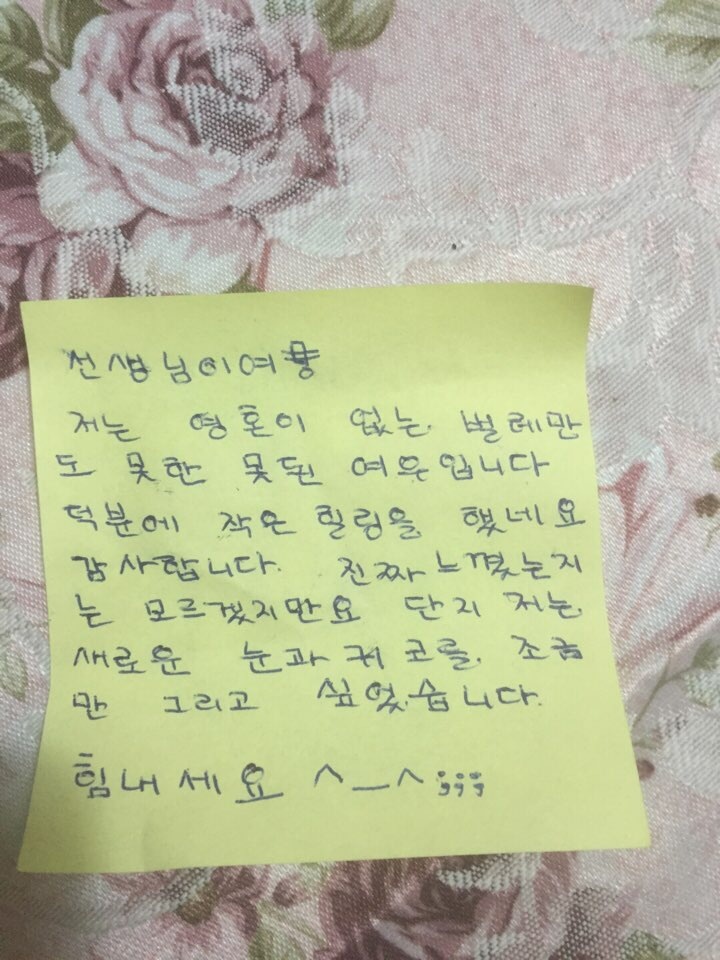 선생님이여
저는 영혼이 없는 벌레만
도 못한 못된 여우입니다
덕분에 작은 힐링을 했네요
감사합니다. 진짜 느꼈는지
는 모르겠지만요 단지 저는
새로운 눈과 귀 코를, 조금
만 그리고 싶었습니다.
힘내세요 ^_^;;;